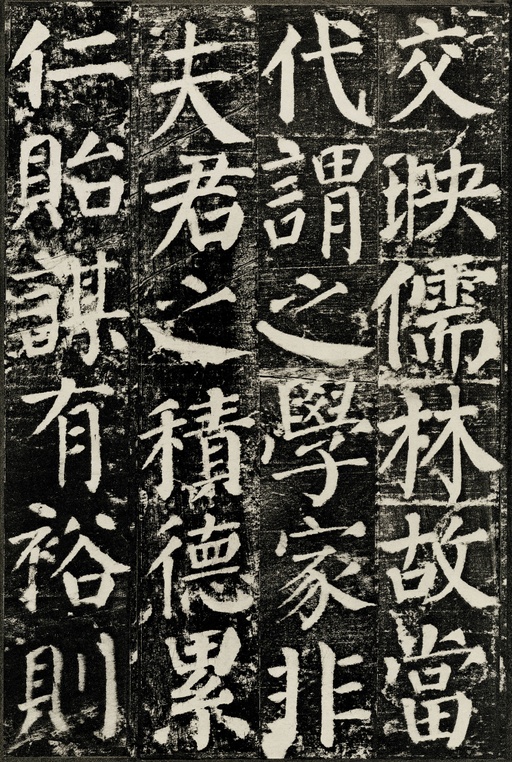 交映儒林故當
代謂之學家非
夫君之積德累
仁貽謀有裕則